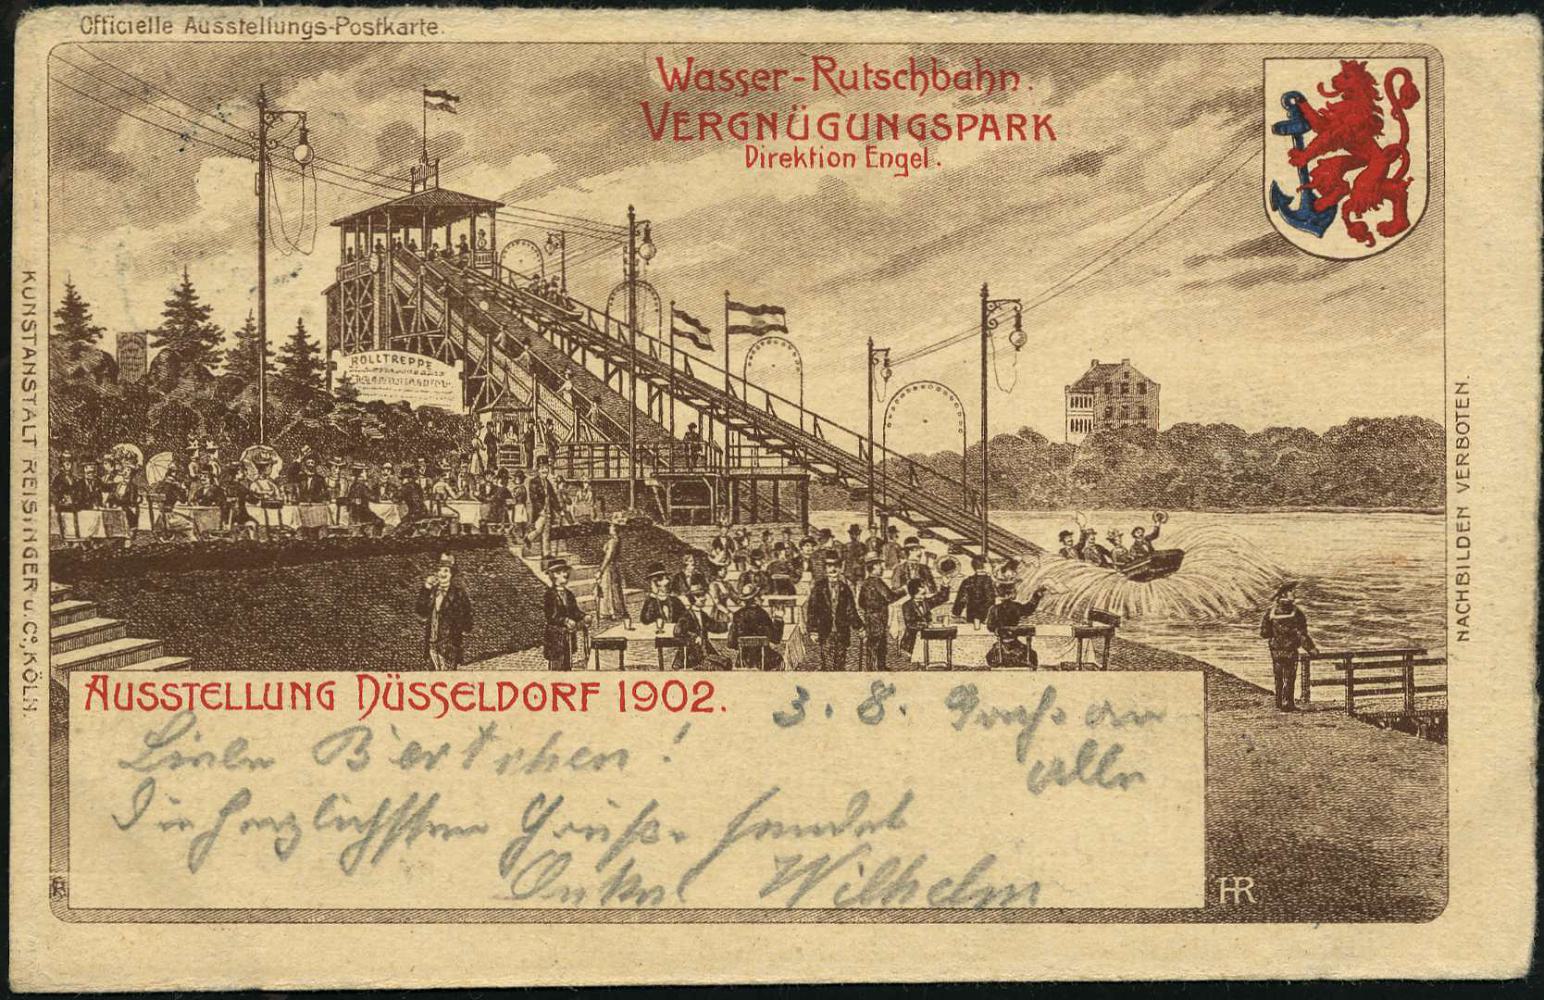 Officielle Ausstellungs-Postkarte.
Wasser-Rutschbahn.
VERGNÜGUNGSPARK
Direktion Engel.
ROLLTREPPE
KUNSTANSTALT REISINGER u. Co, KÖLN.
NACHBILDEN VERBOTEN.
AUSSTELLUNG DÜSSELDORF 1902.
3. 8. Gruß an
alle
Liebes Bertchen!
Die herzlichsten Grüße sendet
Onkel Wilhelm
HR